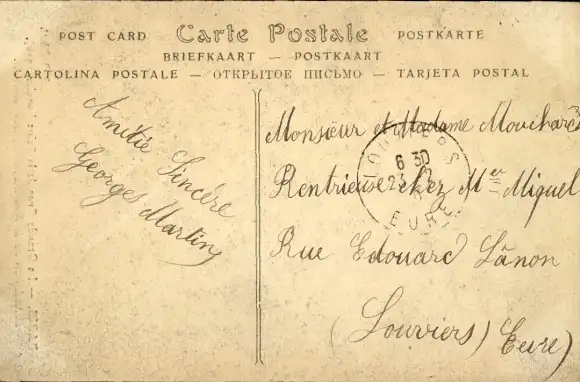 POST CARD Carte Postale POSTKARTE
BRIEFKAART — POSTKAART
CARTOLINA POSTALE — ОТКРЫТОЕ ПИСЬМО — TARJETA POSTAL
Amitié Sincére
Georges Martin
Monsieur et Madame Mouchard
Rentrieuse chez Mer Miguel
Rue Edouard Lânon
(Louviers) Eure)
6 30
23
EURE